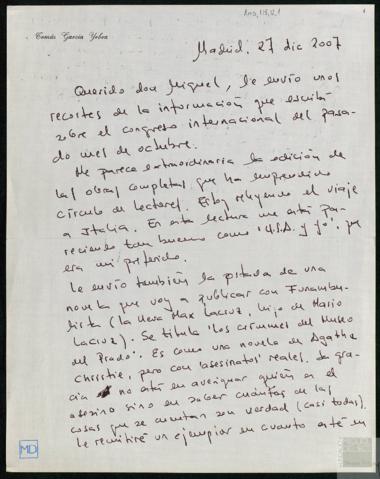 Tomás García Yebra
Madrid, 27 dic 2007
Querido don Miguel, le envío unos
recortes de la información que escribí
sobre el congreso internacional del pasa-
do mes de octubre.
Me parece extraordinaria la edición de
las obras completas que ha emprendido
círculo de lectores. Estoy releyendo el viaje
a Italia. En esta lectura me está pa-
reciendo tan bueno como "U.S.A. y yo", que
era mi preferido.
Le envío también la portada de una
novela que voy a publicar con Funambu-
lista (la lleva Max Lacruz, hijo de Mario
Lacruz). Se titula "Los crímenes del Museo
del Prado". Es como una novela de Agatha
Christie, pero con "asesinatos" reales. La gra-
cia no está en averiguar quién es el
asesino sino en saber cuántas de las
cosas que se cuentan son verdad (casi todas).
Le remitiré un ejemplar en cuanto esté en
MD